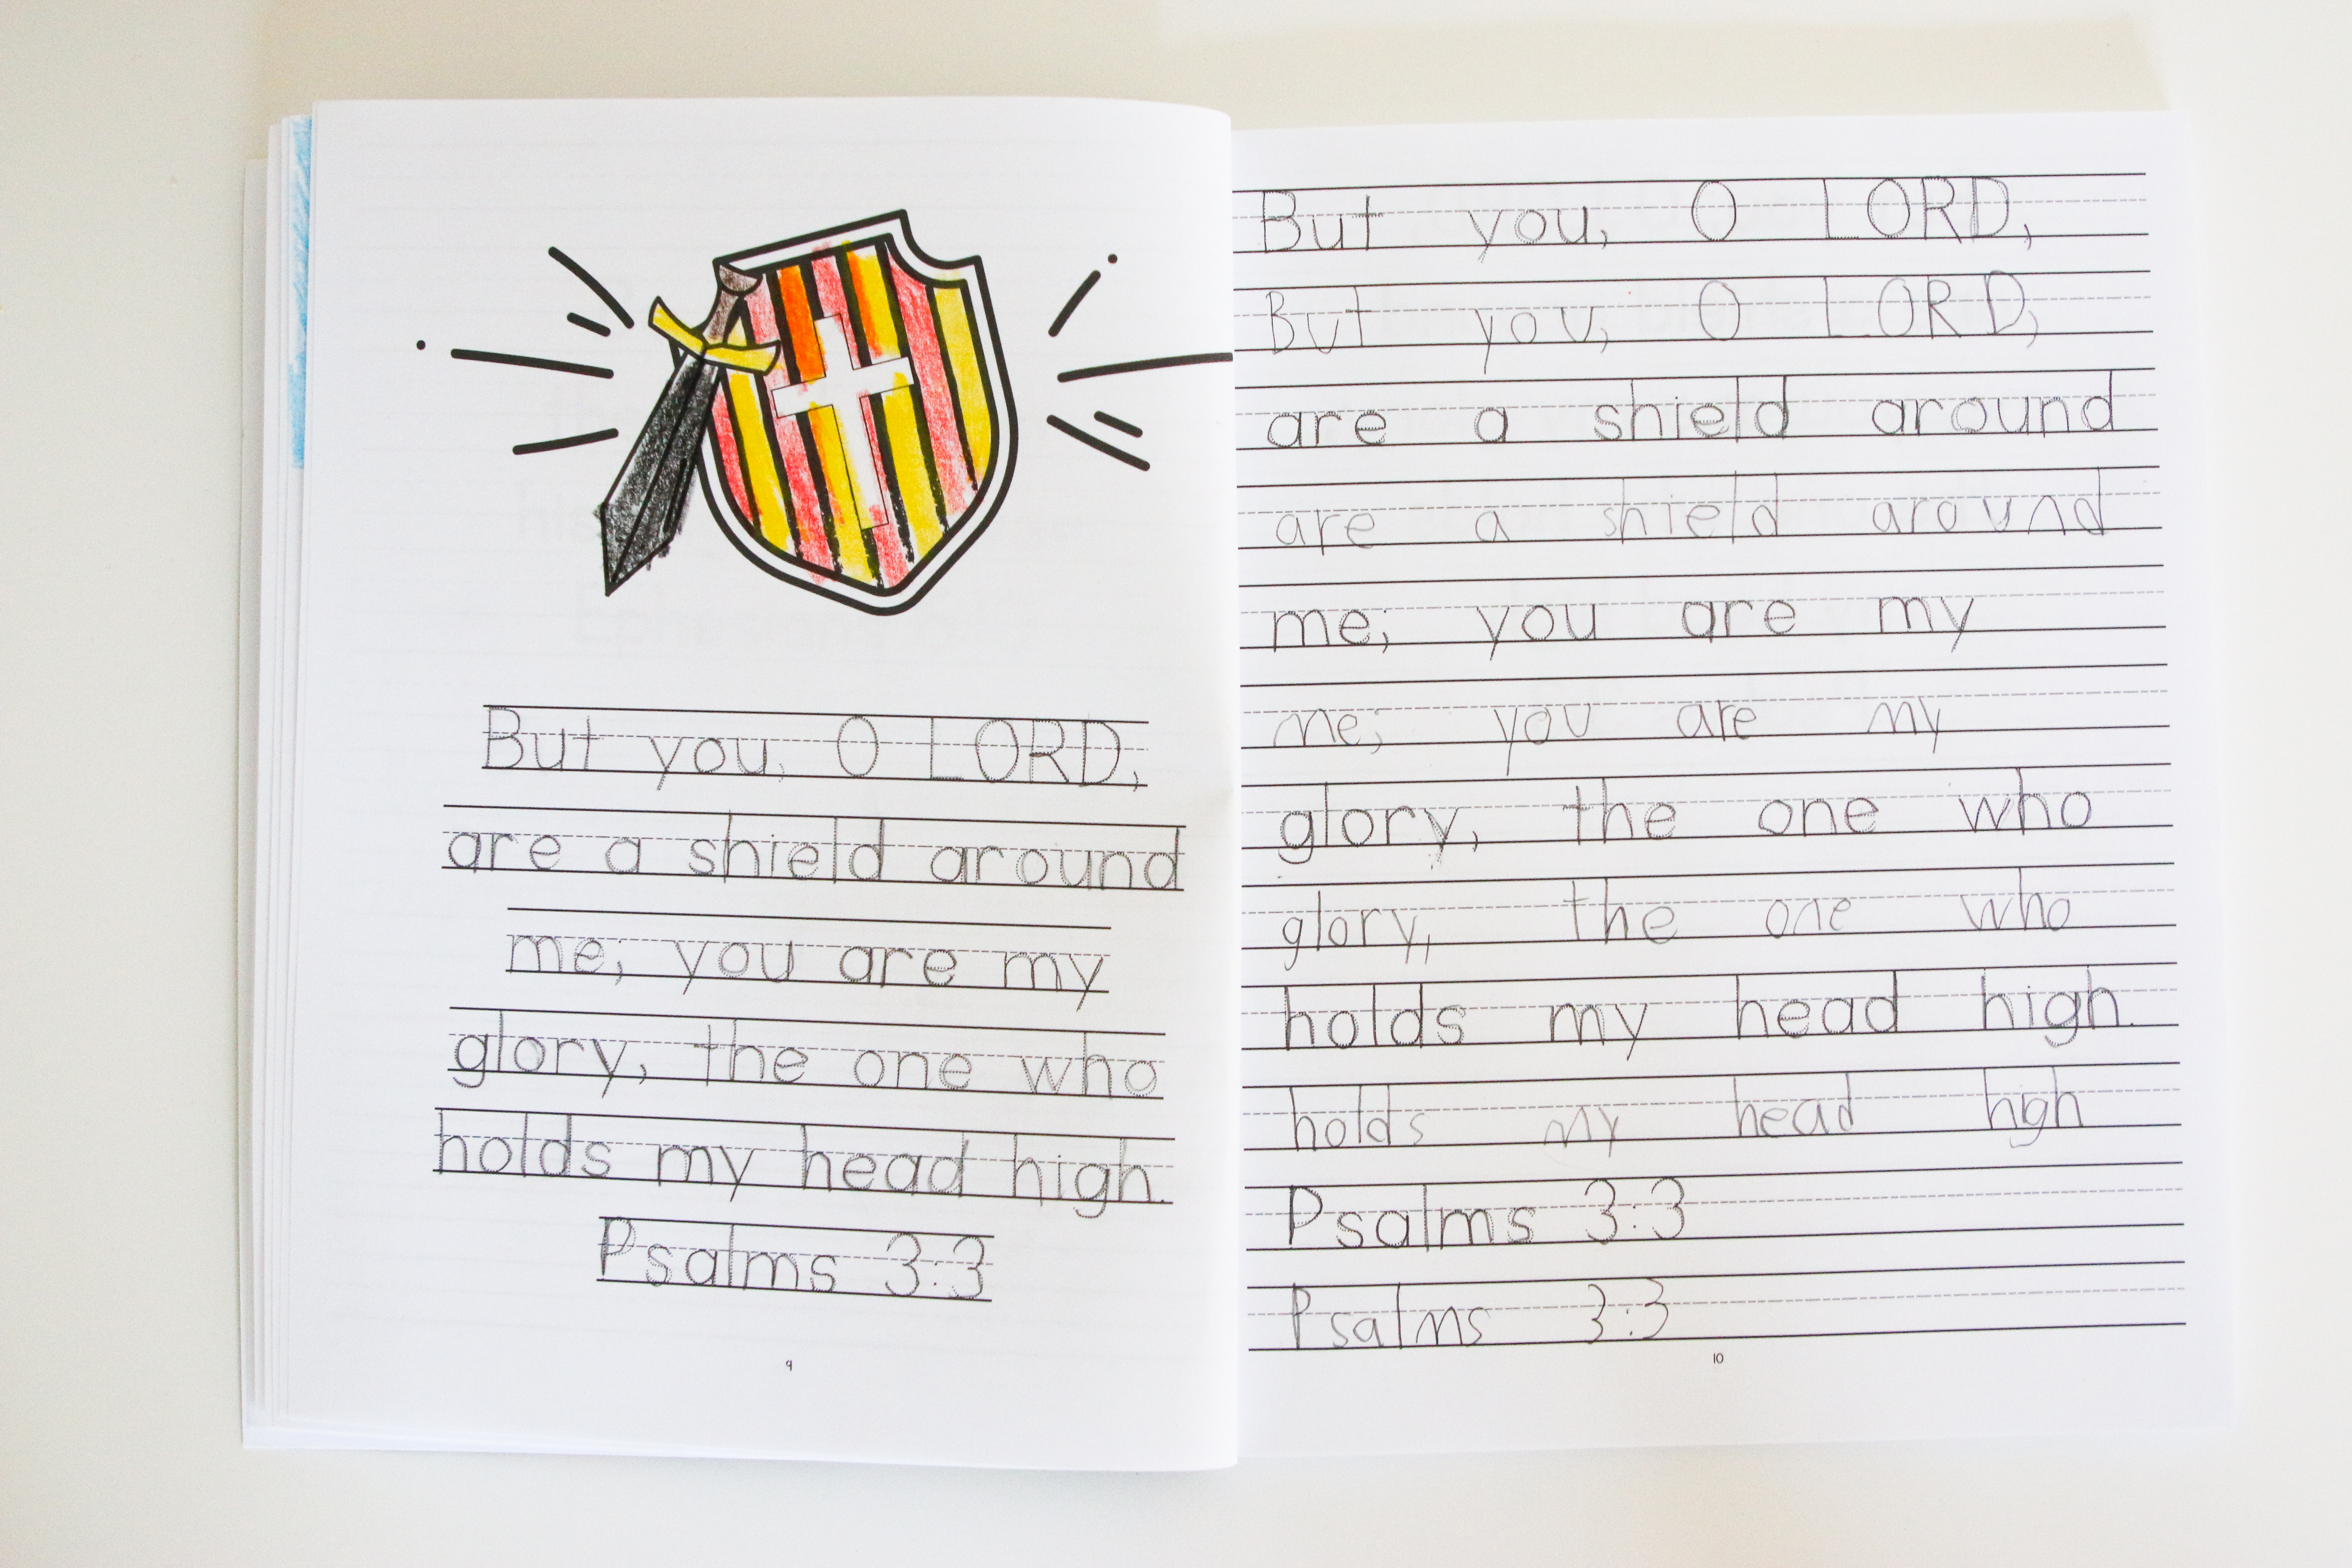 But you, O LORD,
are a shield around
me; you are my
glory, the one who
holds my head high.
Psalms 3:3
9
But you, O LORD,
But you, O LORD,
are a shield around
are a shield around
me; you are my
me; you are my
glory, the one who
glory, the one who
holds my head high.
holds my head hgh
Psalms 3:3
Psalms 3:3
10